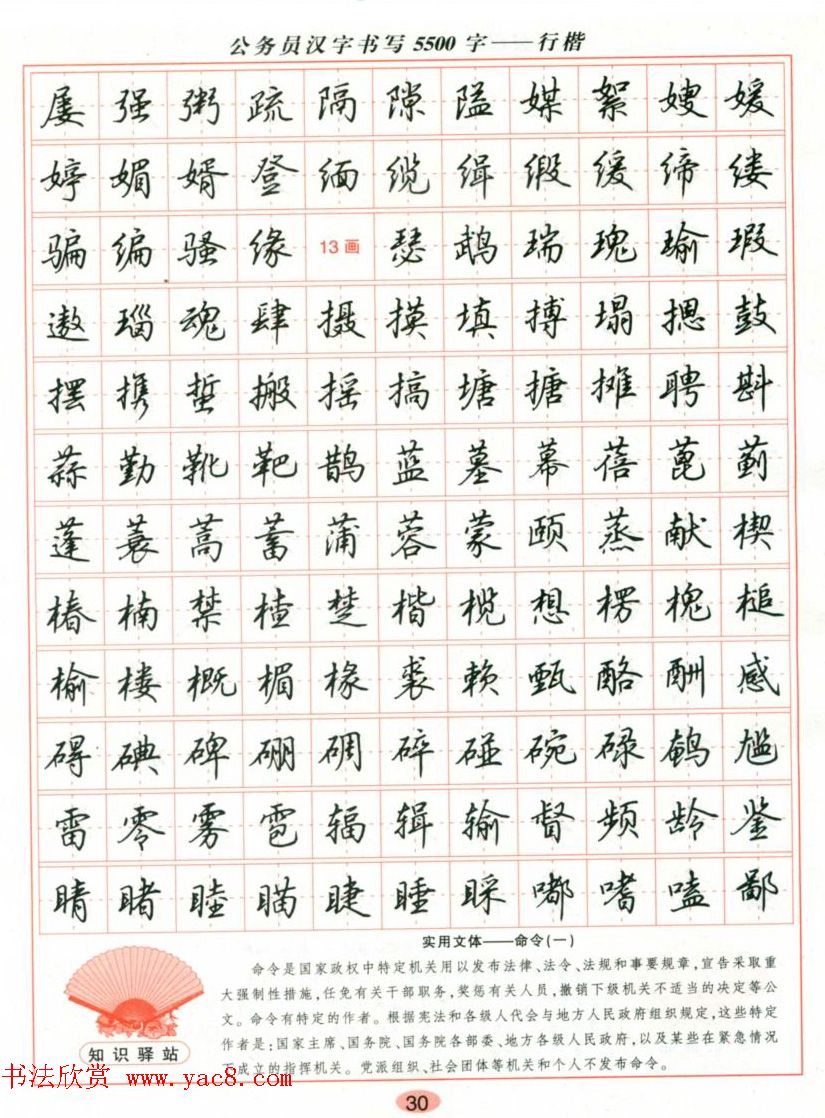 公务员汉字书写5500字——行楷
屡强粥疏隔隙隘媒絮嫂媛
婷媚婿登缅缆缉缎缓缔缕
骗编骚缘13画瑟鹉瑞瑰瑜瑕
遨瑙魂肆摄摸填搏塌摁鼓
摆携蜇搬摇搞塘搪摊聘斟
蒜勤靴靶鹊蓝墓幕蓓蓖蓟
蓬蓑蒿蓄蒲蓉蒙颐蒸献楔
椿楠禁楂楚楷榄想楞槐槌
榆楼概楣椽裘赖甄酪酬感
碍碘碑硼碉碎碰碗碌鹌尴
雷零雾雹辐辑输督频龄鉴
睛睹睦瞄睫睡睬嘟嗜嗑鄙
实用文体——命令(一)
命令是国家政权中特定机关用以发布法律、法令、法规和事要规章，宣告采取重
大强制性措施，任免有关干部职务，奖惩有关人员，撤销下级机关不适当的决定等公
文。命令有特定的作者。根据宪法和各级人代会与地方人民政府组织规定，这些特定
作者是：国家主席、国务院、国务院各部委、地方各级人民政府，以及某些在紧急情况
而成立的指挥机关。党派组织、社会团体等机关和个人不发布命令。
知识驿站
书法欣赏 www.yac8.com
30